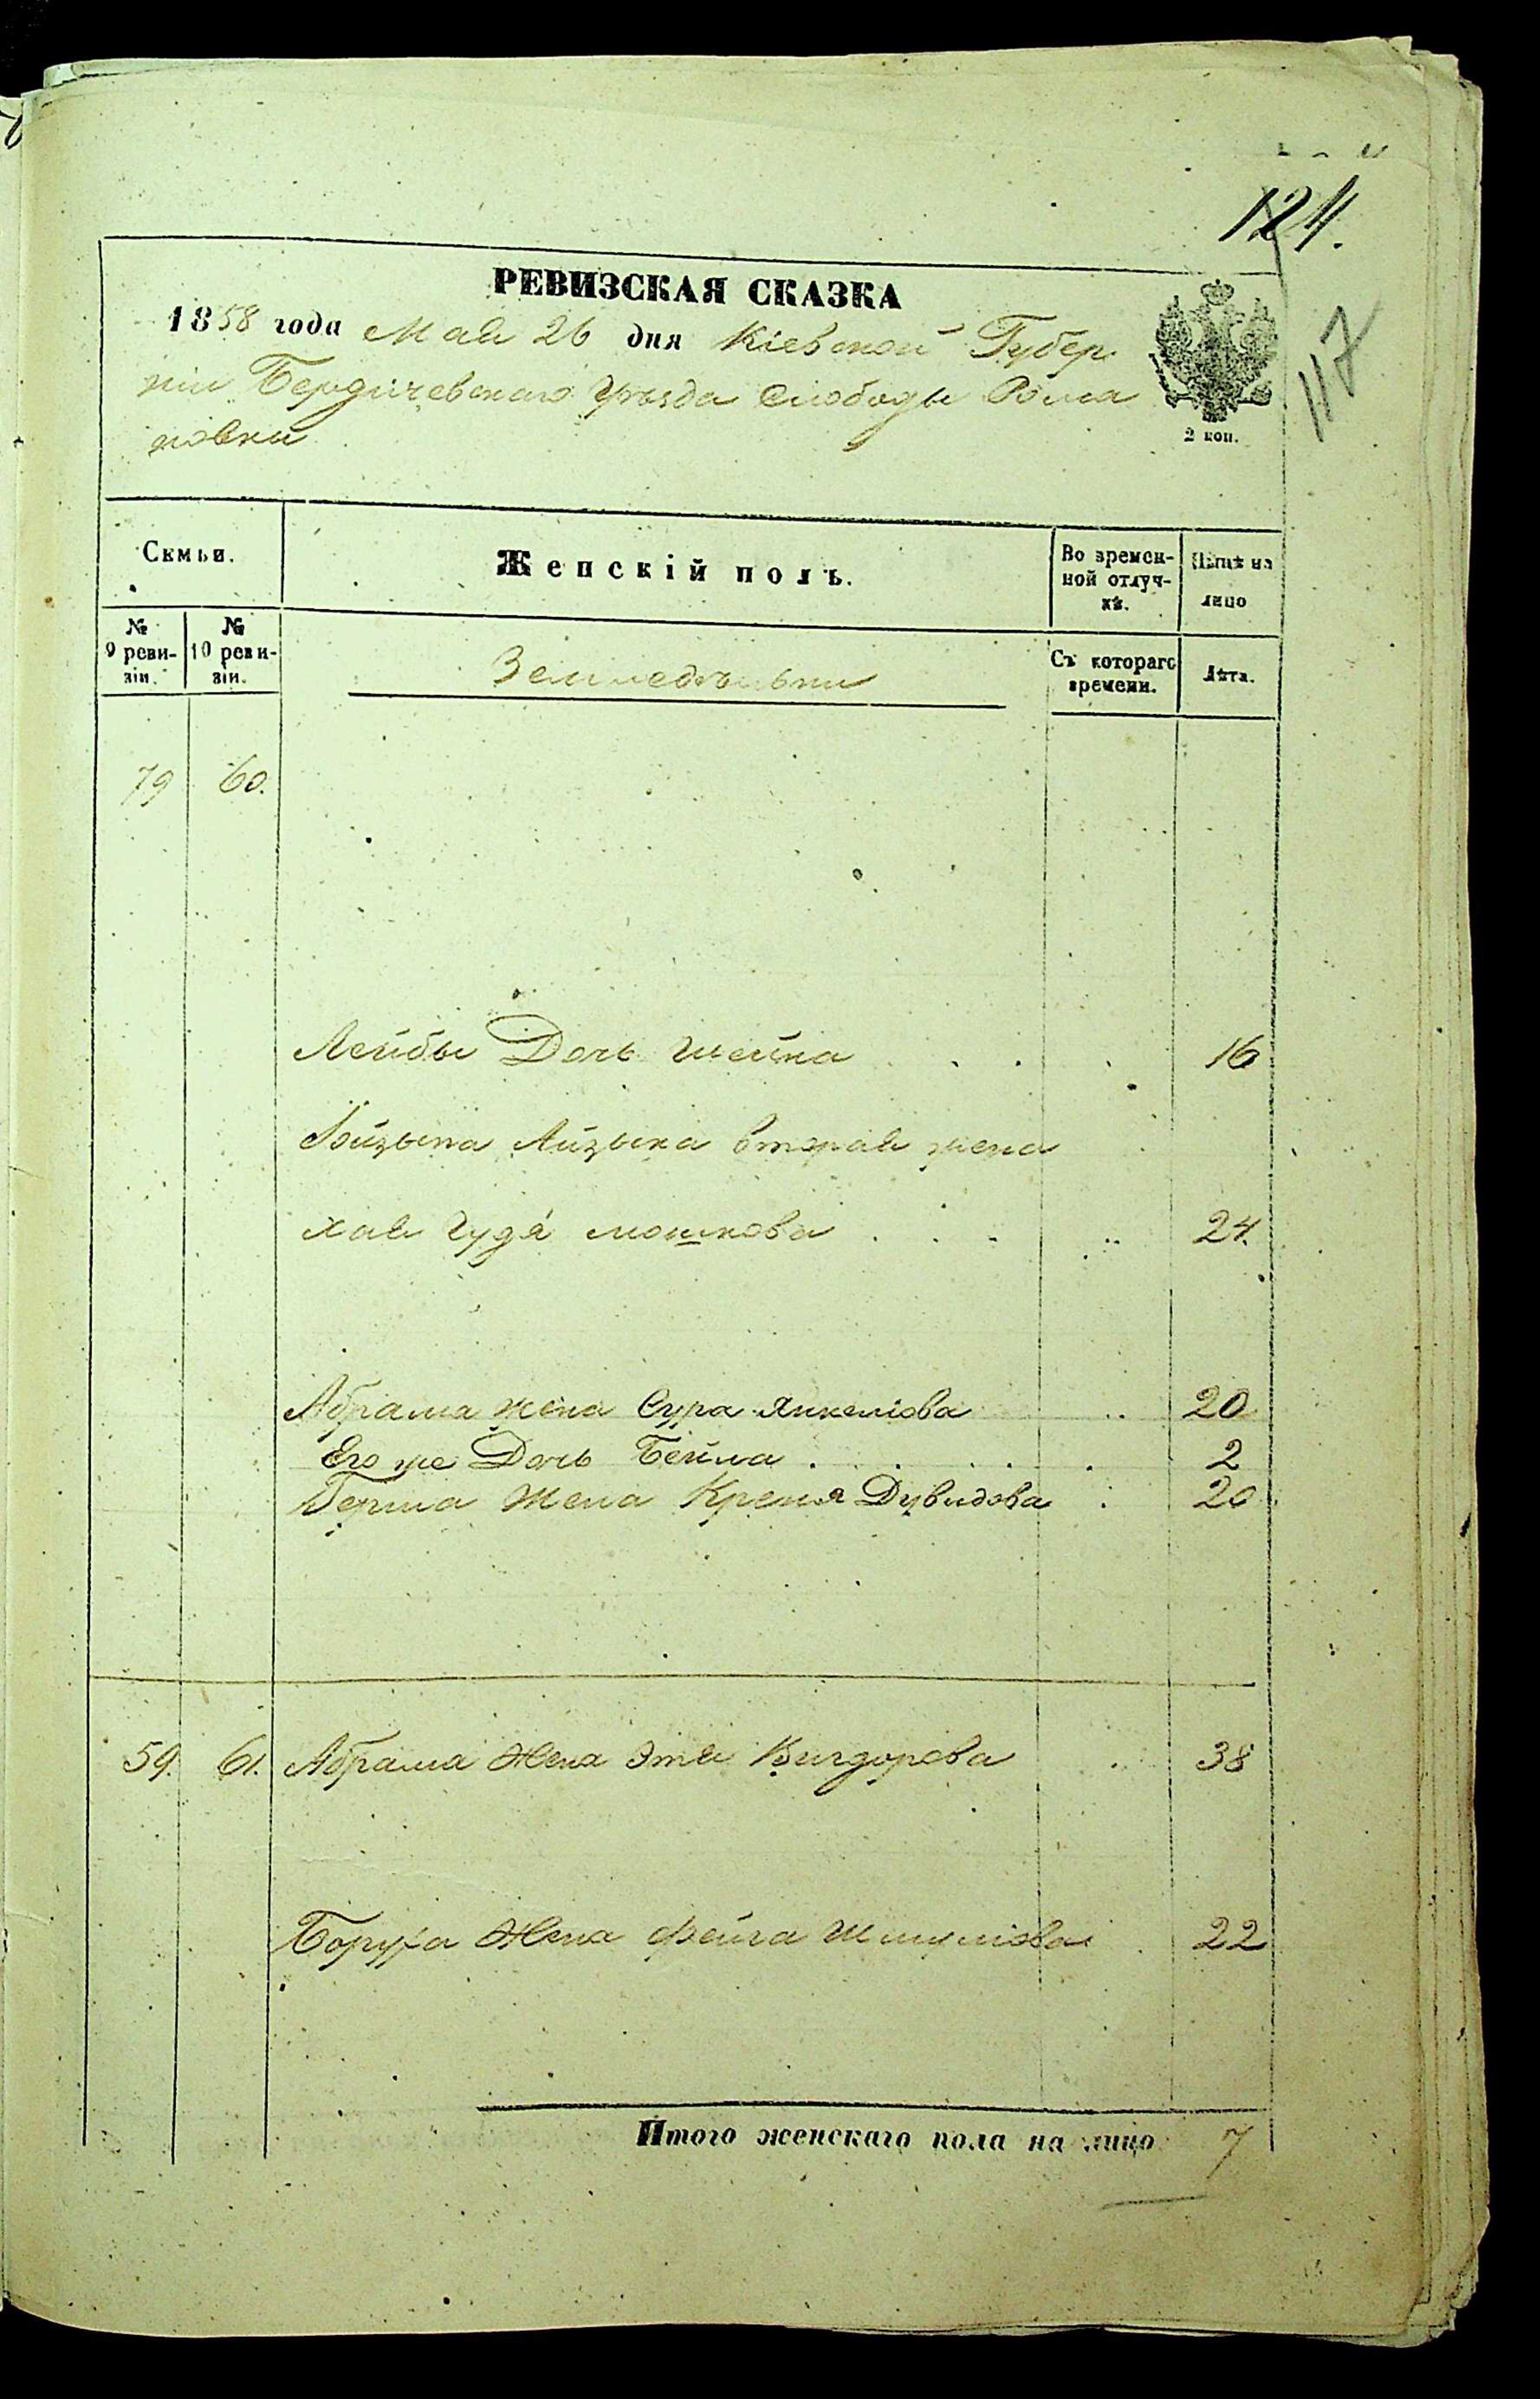 124.
117
РЕВИЗСКАЯ СКАЗКА
1858 года Мая 26 дня Кіевской Губер
ніи Бердичевскаго Уѣзда Слободы Рома
новки
2 коп.
Семьи.
Женскій полъ.
Во времен-
ной отлуч-
кѣ.
Нынѣ на
лицо
№
9 реви-
зіи.
№
10 реви-
зіи.
Земледѣльцы
Съ котораго
времени.
Лѣта.
79 60.
Лейбы Дочь Шейна 16
Айзыка вторая жена
Хая Гудя Мошкова 24.
Абрама жена Сура Янкелиова 20
Его же Дочь Бейла 2
Герша Жена Креня Дувидова 20
59. 61. Абрама Жена Этя Вигдорова 38
Боруха Жена Фейга Шмулиова 22
Итого женскаго пола на лицо 7